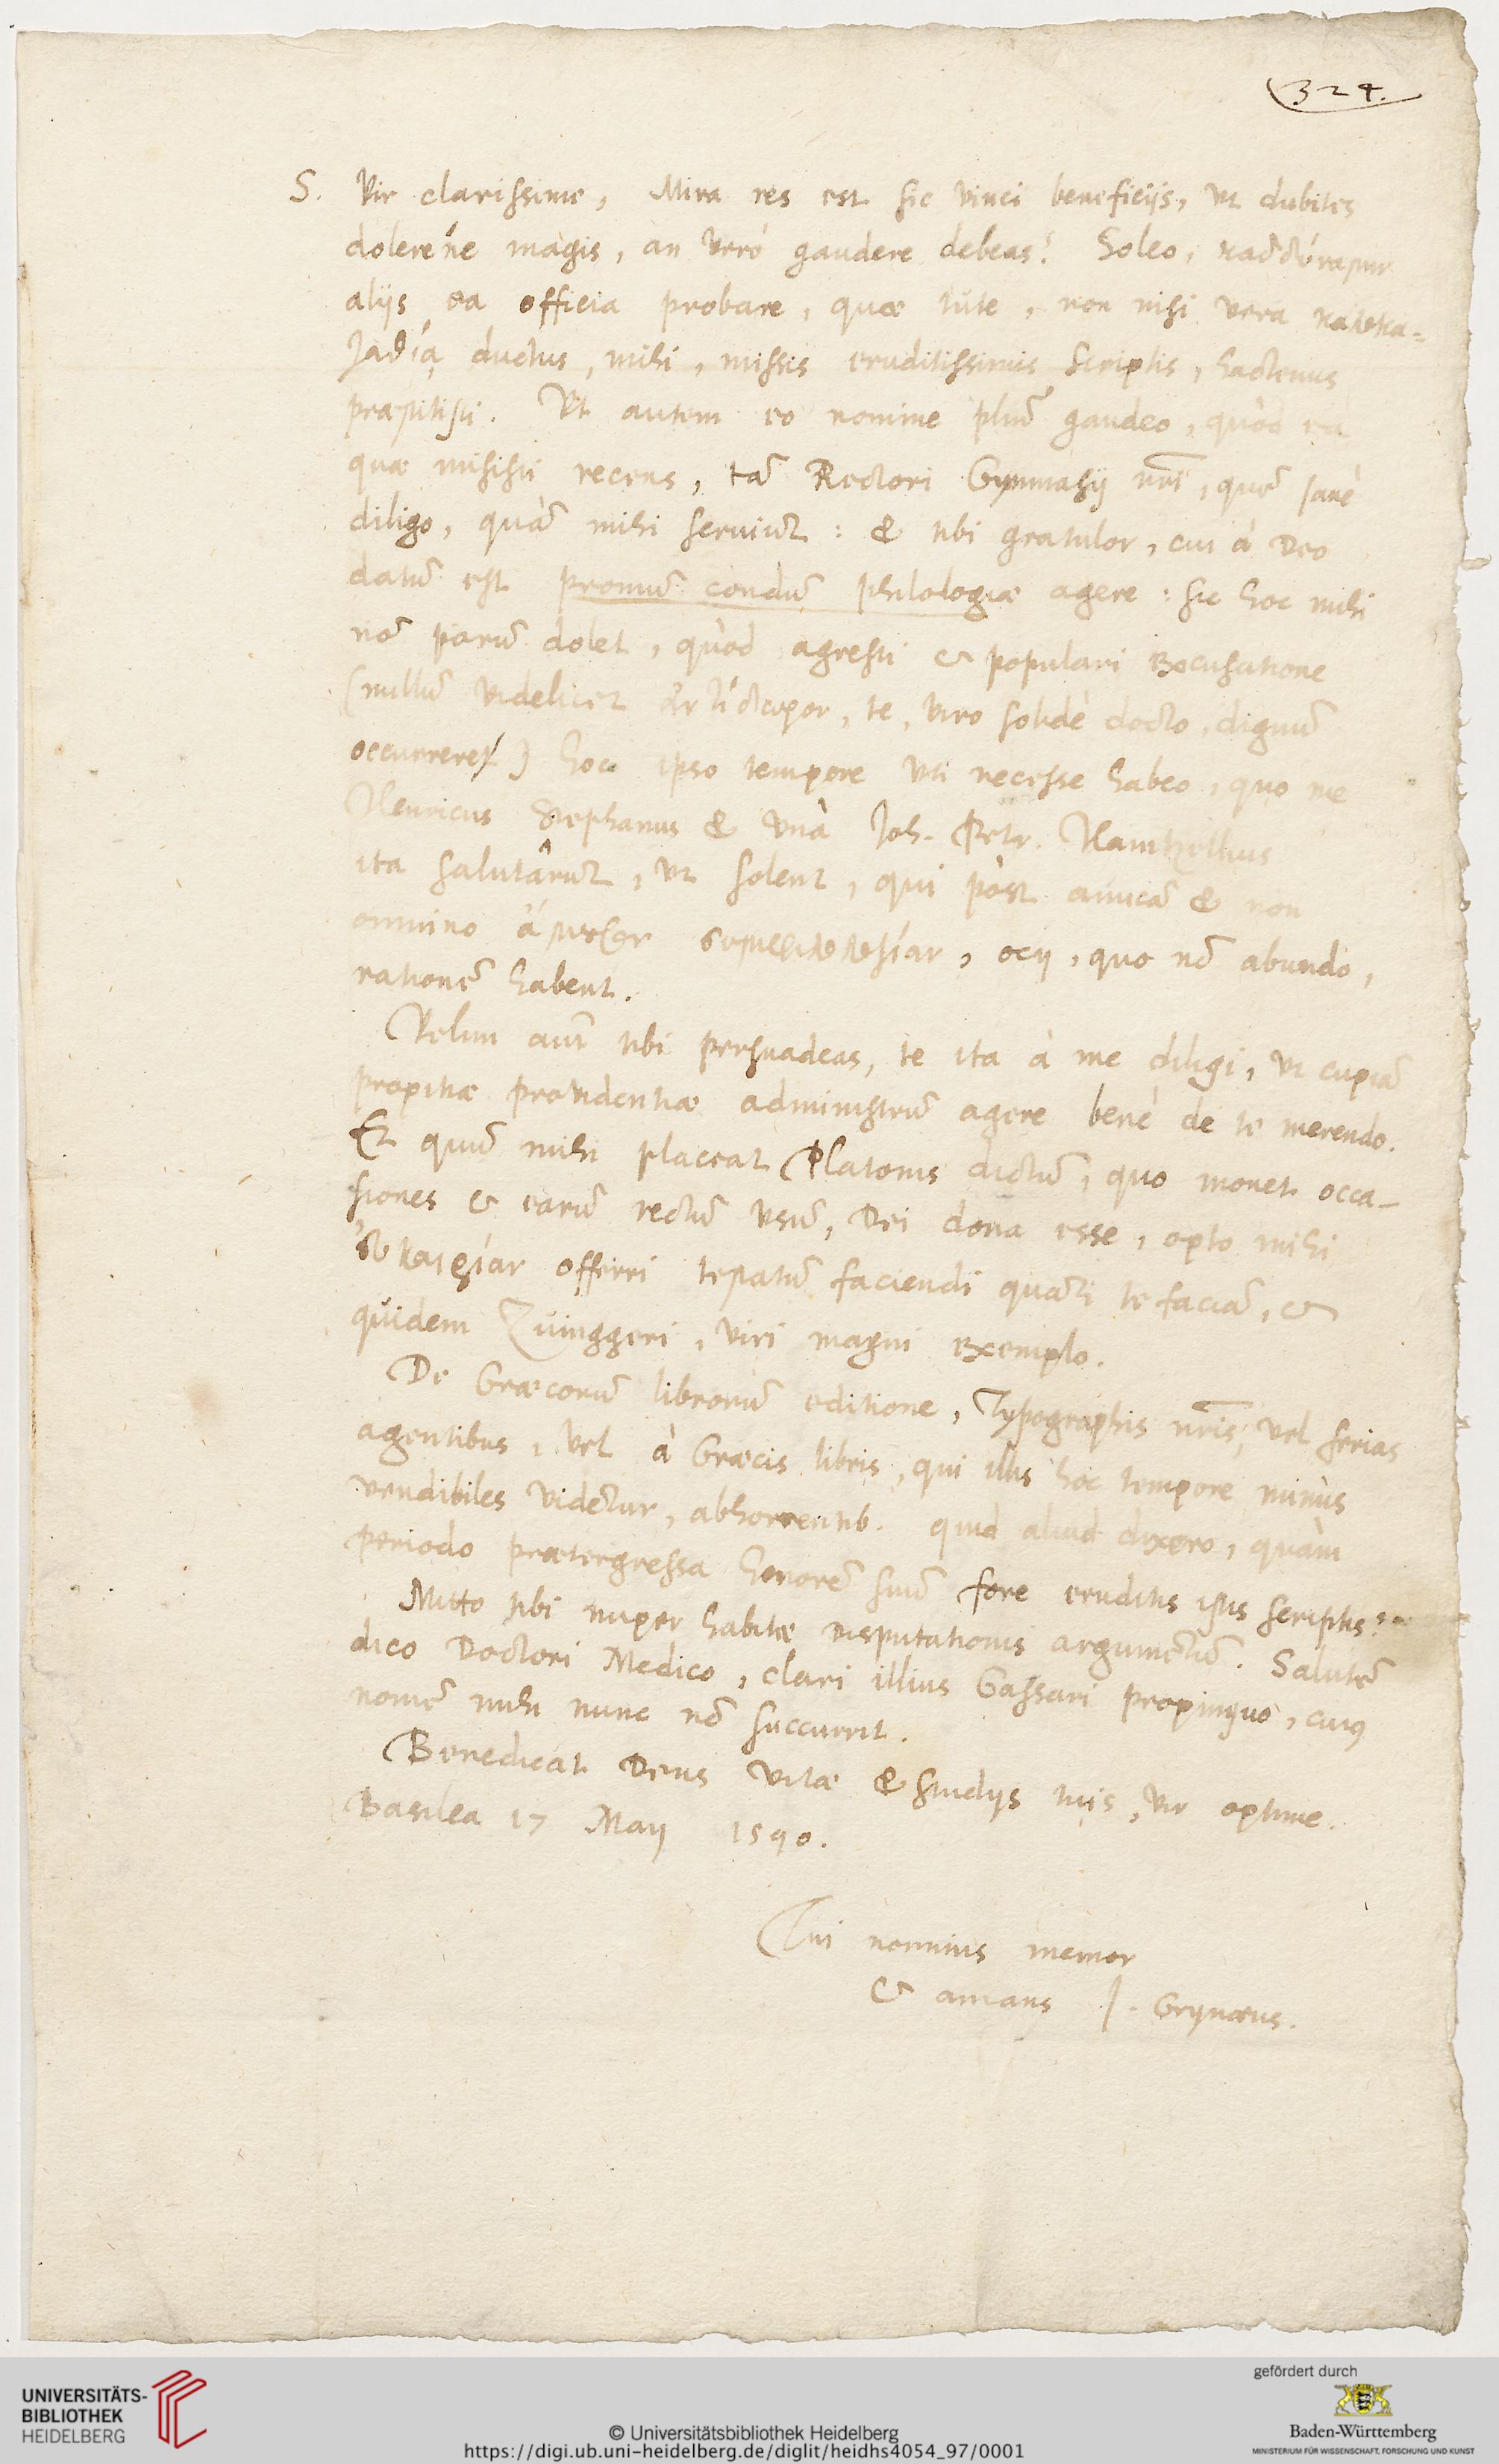 324.
S. Vir clarissime, Mira res est sic vinci beneficijs, vt dubites
dolerène magis, an verò gaudere debeas? Soleo, καθ δύναμιν
alijs ea officia probare, quæ tute, non nisi vera καλοκα=
γαθίᾳ ductus, mihi, missis eruditissimis scriptis, hactenus
præstitisti. Vt autem eo nomine plurimũ gaudeo, quòd ea
quæ misisti recens, tã Rectori Gymnasij nr̃i, quẽ sanè
diligo, quàm mihi seruiũt: & tibi gratulor, cui à Deo
datũ est promũ condũ philologiæ agere: sic hoc mihi
nõ parũ dolet, quòd agresti & populari excusatione
(nullũ videlicet ἀντίδωρον, te, viro solidè docto, dignũ
occurrere) hoc ipso tempore vti necesse habeo, quo me
Henricus Stephanus & vnà Joh. Petr. Haintzellius
ita salutârũt, vt solent, qui post amicã & non
omnino ἄμουσον, ocij, quo nõ abundo,
rationẽ habent.
Velim aut̃ tibi persuadeas, te ita à me diligi, vt cupiã
propitiæ prouidentiæ administrũ agere benè de te merendo.
Et quũ mihi placeat Platonis dictũ, quo monet occa-
siones & earũ rectũ vsũ, Dei dona esse, opto mihi
εὐκαιρίαν offerri testatũ faciendi quãti te faciã, &
quidem Zuinggeri, viri magni exemplo.
De Græcorũ librorũ editione, Typographis nr̃is, vel ferias
agentibus, vel à Græcis libris, qui illis hoc tempore minùs
vendibiles videntur, abhorrentib. quid aliud dixero, quàm
periodo prætergressa honorẽ suũ fore eruditis istis scriptis?
Mitto tibi nuper habitæ disputationis argumẽtũ. Salutẽ
dico Doctori Medico, clari illius Gassari propinquo, cuius
nomẽ mihi nunc nõ succurrit.
Benedicat Deus vitæ & studijs tuis, vir optime.
Basilea 17 Maij 1590.
Tui nominis memor
& amans J. Grynæus.
UNIVERSITÄTS-
BIBLIOTHEK
HEIDELBERG
© Universitätsbibliothek Heidelberg
https://digi.ub.uni-heidelberg.de/diglit/heidhs4054_97/0001
gefördert durch
Baden-Württemberg
MINISTERIUM FÜR WISSENSCHAFT, FORSCHUNG UND KUNST